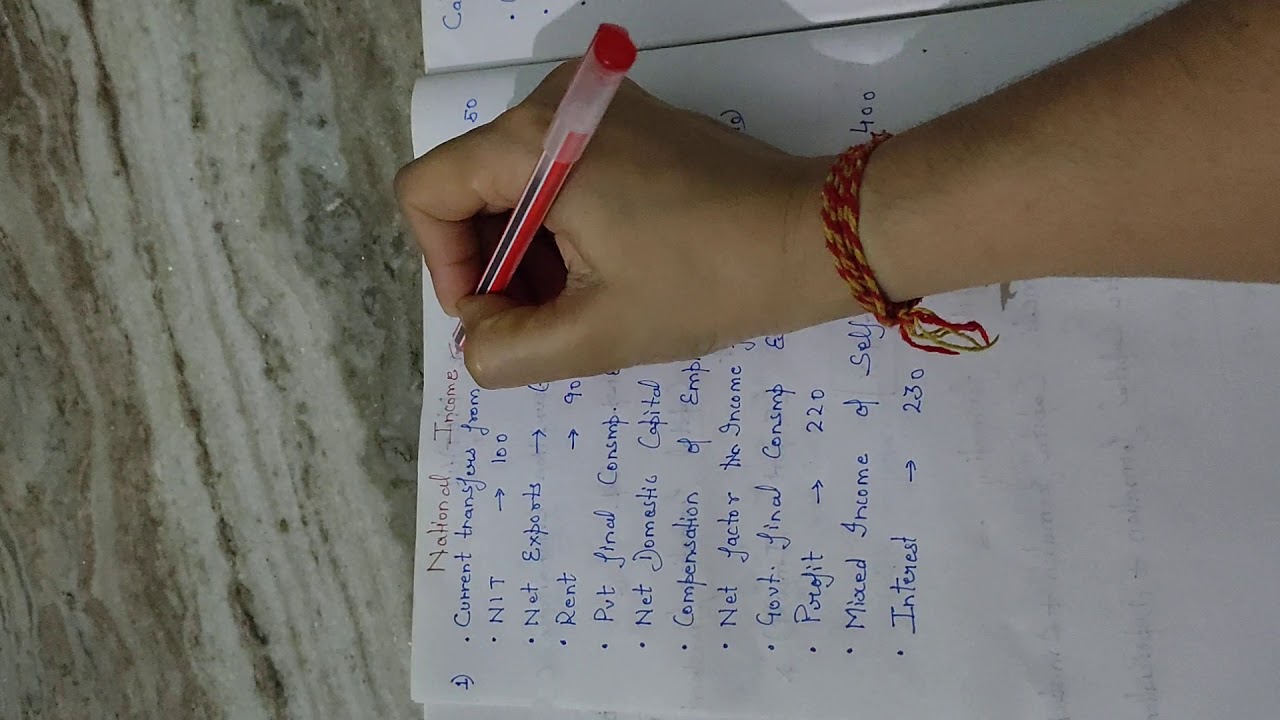 National Income
1) • Current transfers from 50
• NIT → 100
• Net Exports →
• Rent → 90
• Pvt final Consmp.
• Net Domestic Capital
• Compensation of
• Net factor Income
• Govt. final Consmp
• Profit → 220
• Mixed Income of Self 400
• Interest → 230